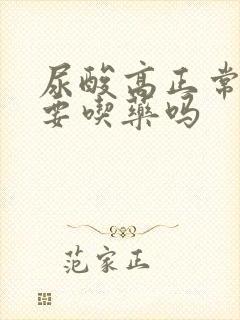 尿酸高正常
要喫藥吗
范家正